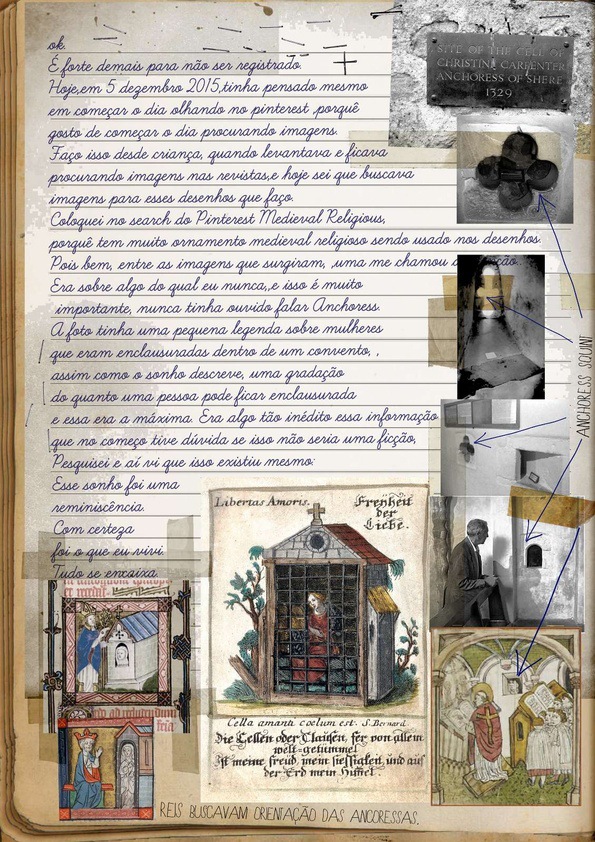 ok.
É forte demais para não ser registrado.
Hoje,em 5 dezembro 2015,tinha pensado mesmo
em começar o dia olhando no pinterest ,porquê
gosto de começar o dia procurando imagens.
Faço isso desde criança, quando levantava e ficava
procurando imagens nas revistas,e hoje sei que buscava
imagens para esses desenhos que faço.
Coloquei no search do Pinterest Medieval Religious,
porquê tem muito ornamento medieval religioso sendo usado nos desenhos.
Pois bem, entre as imagens que surgiram, ,uma me chamou
Era sobre algo do qual eu nunca,,e isso é muito
importante, nunca tinha ouvido falar Anchoress.
A foto tinha uma pequena legenda sobre mulheres
que eram enclausuradas dentro de um convento, ,
assim como o sonho descreve, uma gradação
do quanto uma pessoa pode ficar enclausurada
e essa era a máxima. Era algo tão inédito essa informação
que no começo tive dúvida se isso não seria uma ficção,
Pesquisei e aí vi que isso existiu mesmo:
Esse sonho foi uma
reminiscência.
Com certeza
foi o que eu vivi.
Tudo se encaixa.
SITE OF THE CELL OF
CHRISTINE CARPENTER
ANCHORESS OF SHERE
1329
ANCHORESS SQUINT
Libertas Amoris.
Freyheit
der
Liebe.
Cella amanti cœlum est. S. Bernard.
Die Cellen oder Clausen, fer von allem
welt-getümmel
Ist meine freud, mein siessigkeit, und auf
der Erd mein Himel
REIS BUSCAVAM ORIENTAÇÃO DAS ANCORESSAS.